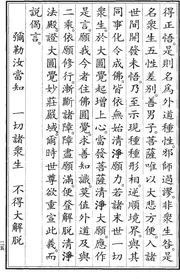 得正悟是則名為外道種性邪師過謬非眾生咎是
名眾生五性差別善男子菩薩唯以大悲方便入諸
世間開發未悟乃至示現種種形相逆順境界與其
同事化令成佛皆依無始清淨願力若諸末世一切
眾生於大圓覺起增上心當發菩薩清淨大願應作
是言願我今者住佛圓覺求善知識莫值外道及與
二乘依願修行漸斷諸障障盡願滿便登解脫清淨
法殿證大圓覺妙莊嚴域爾時世尊欲重宣此義而
說偈言
彌勒汝當知 一切諸眾生 不得大解脫